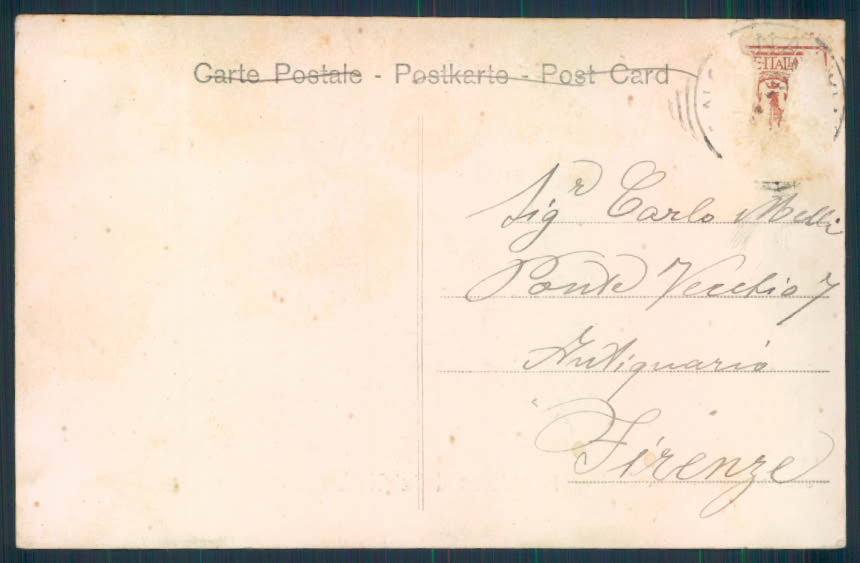 Carte Postale - Postkarte - Post Card
E·ITALI
Sigr Carlo Melli
Ponte Vecchio 7
Antiquario
Firenze